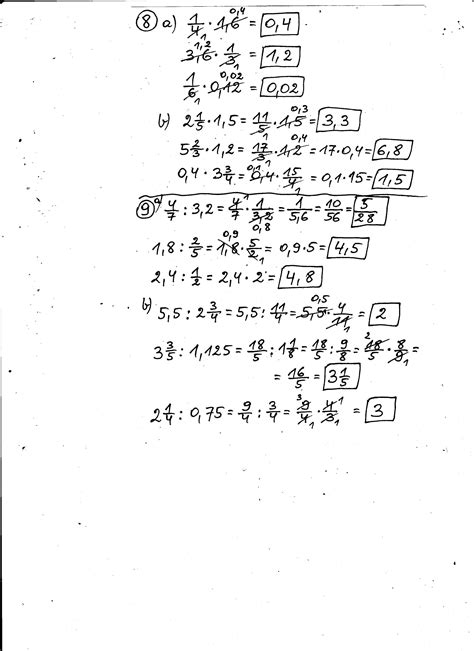 8 a) 1/4 · 1,6 0,4 = 0,4
3,6 1,2 · 1/3 1 = 1,2
1/6 1 · 0,12 0,02 = 0,02
b) 2 1/5 · 1,5 = 11/5 1 · 1,5 0,3 = 3,3
5 2/3 · 1,2 = 17/3 1 · 1,2 0,4 = 17 · 0,4 = 6,8
0,4 · 3 3/4 = 0,4 0,1 · 15/4 1 = 0,1 · 15 = 1,5
9 a) 4/7 : 3,2 = 4 1/7 · 1/3,2 0,8 = 1/5,6 = 10/56 = 5/28
1,8 : 2/5 = 1,8 0,9 · 5/2 1 = 0,9 · 5 = 4,5
2,4 : 1/2 = 2,4 · 2 = 4,8
b) 5,5 : 2 3/4 = 5,5 : 11/4 = 5,5 0,5 · 4/11 1 = 2
3 3/5 : 1,125 = 18/5 : 1 1/8 = 18/5 : 9/8 = 2 18/5 · 8/9 1 =
= 16/5 = 3 1/5
2 1/4 : 0,75 = 9/4 : 3/4 = 3 9/4 1 · 4 1/3 1 = 3